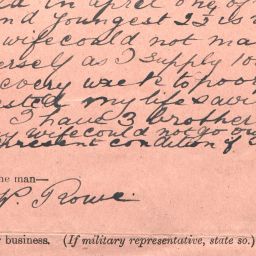 in april one of
nd youngest 23 is
wife could not ma
erself as I supply 10
every week to poor
ested my life savi
I have 3 brother
wife could not go ou
present condition of
he man—
P. Rowe.
business. (If military representative, state so.)